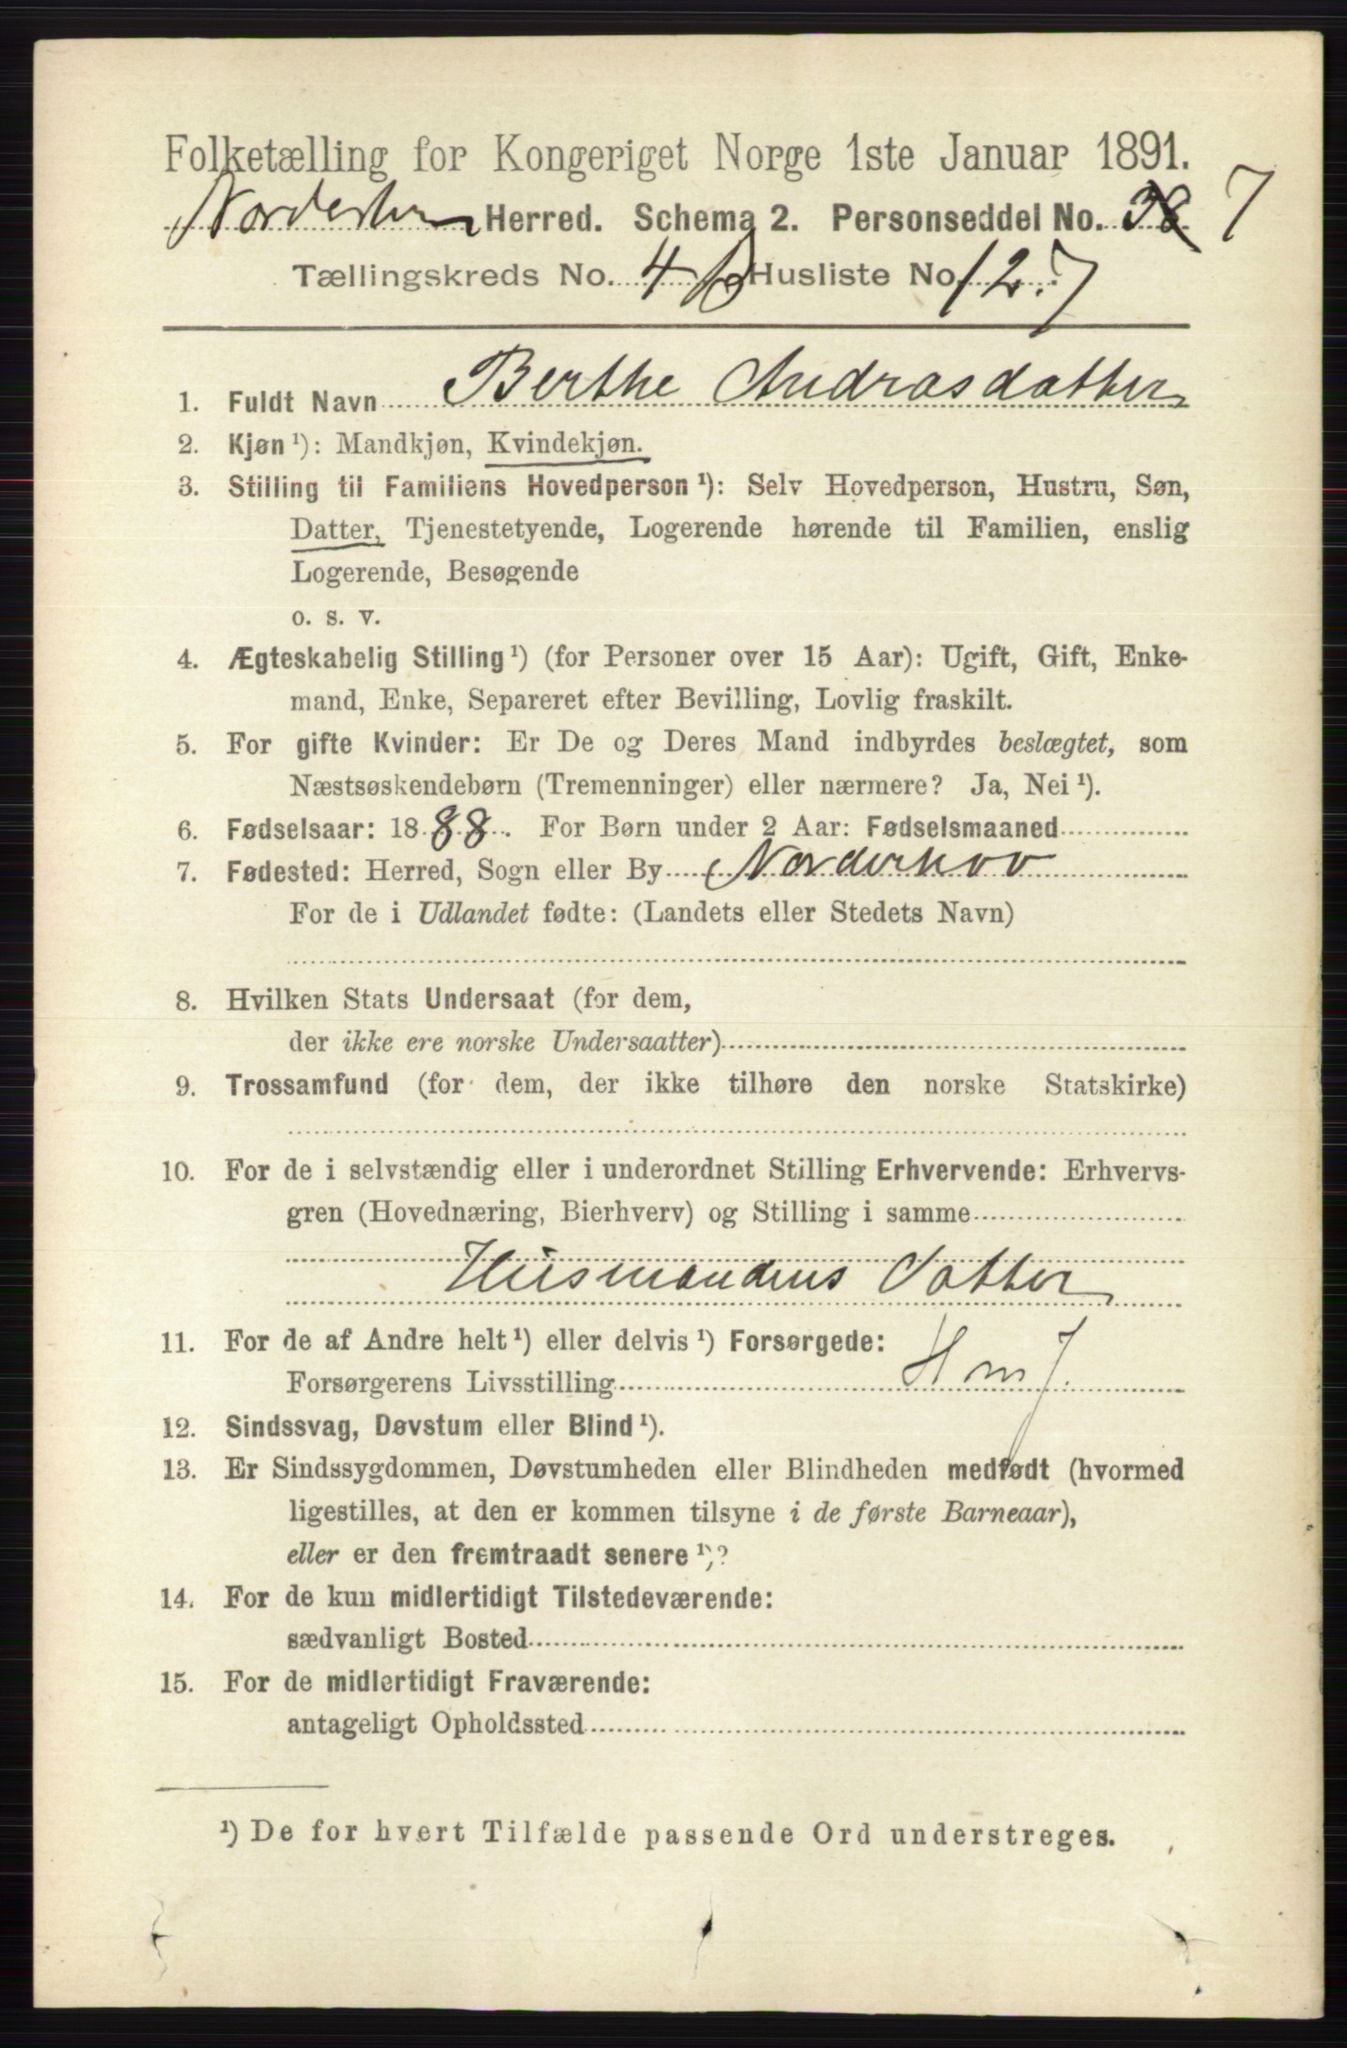 Folketælling for Kongeriget Norge 1ste Januar 1891.
Herred. Schema 2. Personseddel No. 38 7
Tællingskreds No. 4 B Husliste No 127
1. Fuldt Navn Berthe Andrasdatter
2. Kjøn ¹): Mandkjøn, Kvindekjøn.
3. Stilling til Familiens Hovedperson ¹): Selv Hovedperson, Hustru, Søn,
Datter, Tjenestetyende, Logerende hørende til Familien, enslig
Logerende, Besøgende
o. s. v.
4. Ægteskabelig Stilling ¹) (for Personer over 15 Aar): Ugift, Gift, Enke-
mand, Enke, Separeret efter Bevilling, Lovlig fraskilt.
5. For gifte Kvinder: Er De og Deres Mand indbyrdes beslægtet, som
Næstsøskendebørn (Tremenninger) eller nærmere? Ja, Nei ¹).
6. Fødselsaar: 1888. For Børn under 2 Aar: Fødselsmaaned
7. Fødested: Herred, Sogn eller By Norderhov
For de i Udlandet fødte: (Landets eller Stedets Navn)
8. Hvilken Stats Undersaat (for dem,
der ikke ere norske Undersaatter)
9. Trossamfund (for dem, der ikke tilhøre den norske Statskirke)
10. For de i selvstændig eller i underordnet Stilling Erhvervende: Erhvervs-
gren (Hovednæring, Bierhverv) og Stilling i samme
Husmandens Datter
11. For de af Andre helt ¹) eller delvis ¹) Forsørgede:
Forsørgerens Livsstilling Hmj.
12. Sindssvag, Døvstum eller Blind ¹).
13. Er Sindssygdommen, Døvstumheden eller Blindheden medfødt (hvormed
ligestilles, at den er kommen tilsyne i de første Barneaar),
eller er den fremtraadt senere ¹)?
14. For de kun midlertidigt Tilstedeværende:
sædvanligt Bosted
15. For de midlertidigt Fraværende:
antageligt Opholdssted
¹) De for hvert Tilfælde passende Ord understreges.